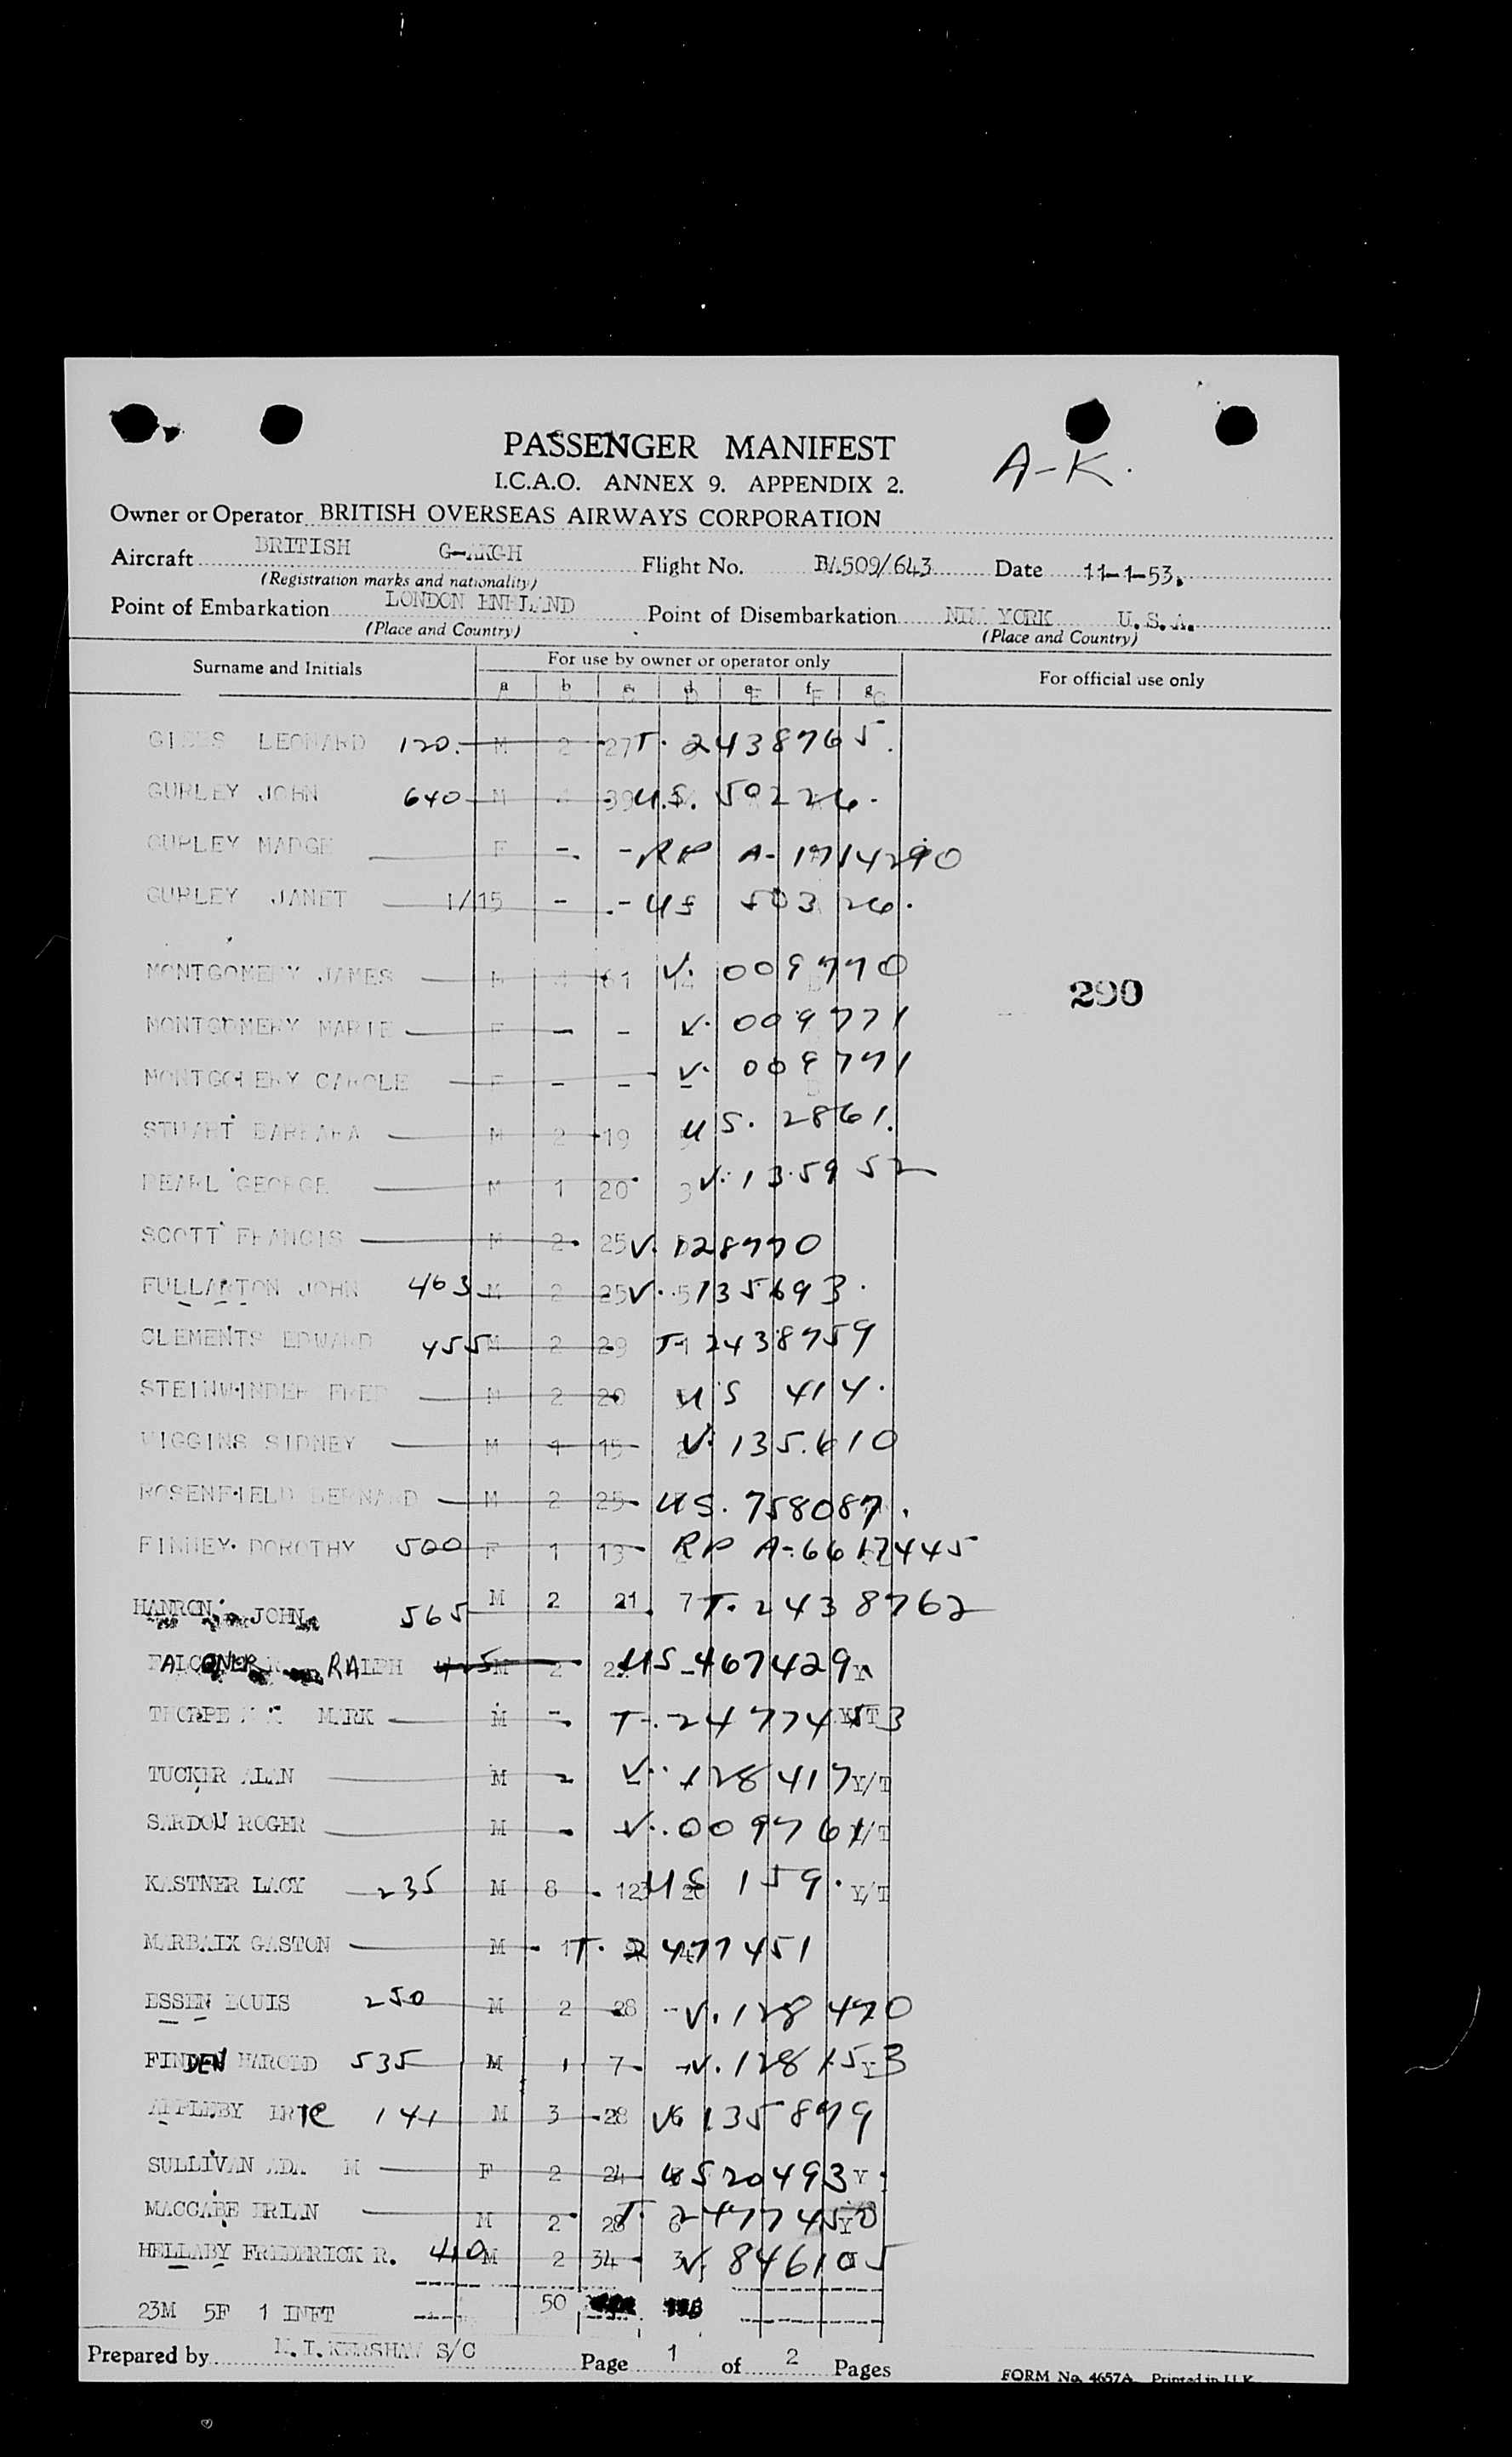 PASSENGER MANIFEST
A-K.
I.C.A.O. ANNEX 9. APPENDIX 2.
Owner or Operator BRITISH OVERSEAS AIRWAYS CORPORATION
Aircraft BRITISH G-AKGH Flight No. BA509/643 Date 11-1-53.
(Registration marks and nationality)
Point of Embarkation LONDON Point of Disembarkation NEW YORK U.S.A.
(Place and Country) (Place and Country)
Surname and Initials For use by owner or operator only For official use only
a b c d e f g
LEONARD 120. M 2 27 T. 2438765.
GURLEY JOHN 640 M 39 U.S. 50226.
GURLEY MADGE F - - RP A-1714290
GURLEY JANET 1/15 - - US 50326.
MONTGOMERY JAMES M 4 61 V. 009770
290
MONTGOMERY MARIE F - - V. 009771
MONTGOMERY CAROLE F - - V. 009771
STUART BARBARA M 2 19 US. 2861.
PEARL GEORGE M 1 20 3 V. 135952
SCOTT FRANCIS M 2 25 V. 128770
FULLARTON JOHN 463 M 2 25 V. 135693.
CLEMENTS EDWARD 455 M 2 29 T- 2438759
STEINWINDER FRED M 2 20 US 414.
WIGGINS SIDNEY M 1 15 V. 135.610
ROSENFIELD BERNARD M 2 25 US. 758087.
FINNEY DOROTHY 500 F 1 13 RP A-6617445
HANRON JOHN 565 M 2 21 7 T. 2438762
FALCONER RALPH 425 M 2 US-467429 Y
THORPE MARK M - T-. 2477453 Y/T
TUCKER ALAN M - V. 128417 Y/T
SARDOU ROGER M - V. 009761 Y/T
KASTNER LACY 235 M 8 123 US 159. Y/T
MARBAIX GASTON M 1 T. 2477451
ESSEN LOUIS 250 M 2 28 - V. 128470
FINDEN HAROLD 535 M 1 7 V. 128153 Y
APPLEBY 141 M 3 28 V 135879
SULLIVAN ADA M F 2 24 US 20493 Y
MACCABE M 2 28 6 T. 2477450 Y
HELLABY FREDERICK R. 410 M 2 34 3 V. 846105
23M 5F 1 INFT 50
Prepared by KERSHAW S/C Page 1 of 2 Pages
FORM No. 4657A. Printed in U.K.